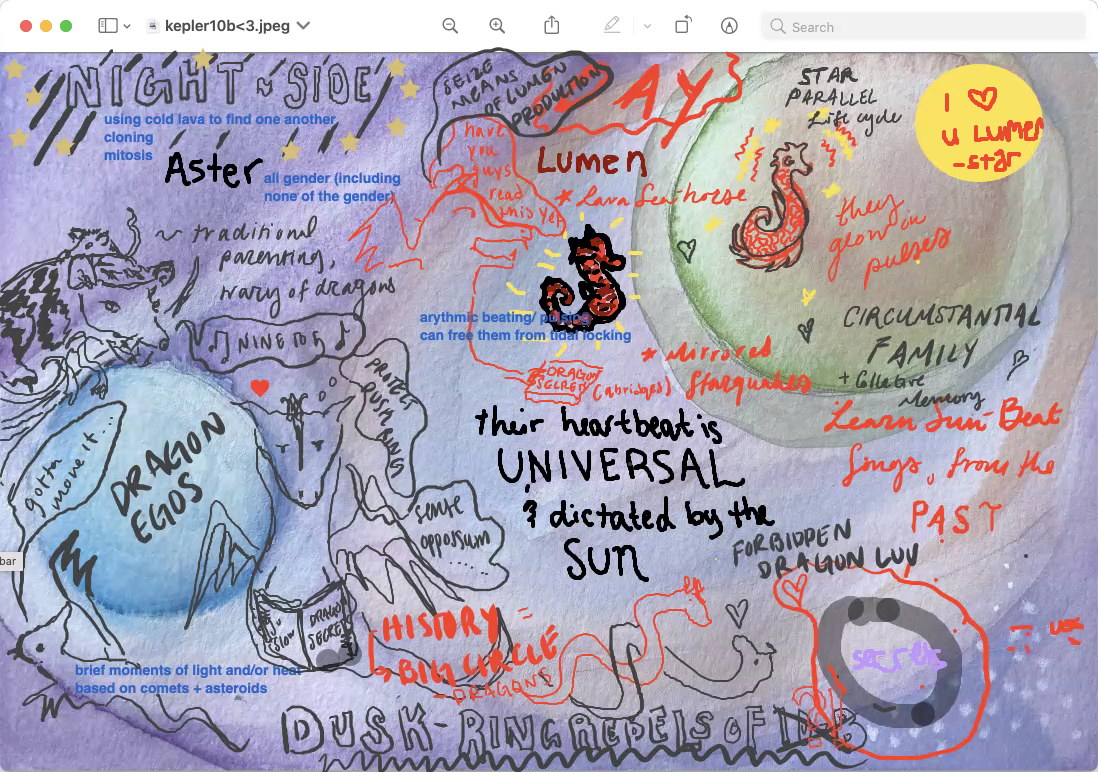 kepler10b<3.jpeg
Search
NIGHT ~ SIDE
using cold lava to find one another
cloning
mitosis
Aster
all gender (including
none of the gender)
~ traditional
parenting,
wary of dragons
SEIZE
MEANS
OF LUMEN
PRODUCTION
AY
have
you
guys
read
this yet
Lumen
* Lava Seahorse
STAR
PARALLEL
Life cycle
I ♡
u LUMEN
-star
they
glow on
pulses
arythmic beating/ pulsing
can free them from tidal locking
NINE TO 5
PROTECT
DUSK RING
DRAGON
SECRET
(abridged)
* Mirrored
Starquakes
CIRCUMSTANTIAL
FAMILY
+ Collective
Memory
Learn Sun-Beat
Songs, from the
PAST
their heartbeat is
UNIVERSAL
& dictated by the
SUN
gotta
move it...
DRAGON
EGOS
sense
oppossum
FORBIDDEN
DRAGON LUV
DRAGON
SECRET
HISTORY =
BIG CIRCLE
- DRAGONS
secrets
us
bar
brief moments of light and/or heat
based on comets + asteroids
DUSK-RING REBELS OF 10B